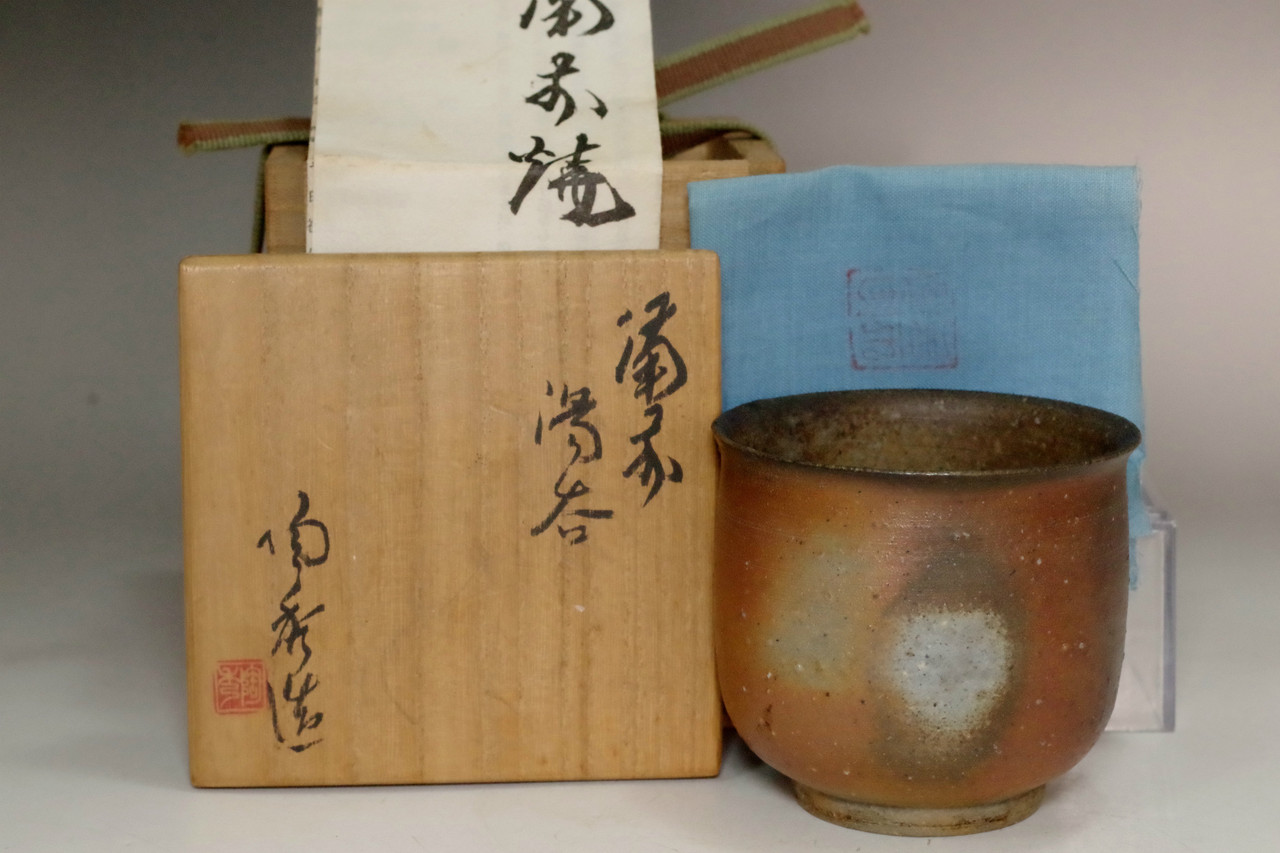 備前焼
備前
湯呑
陶秀造
陶秀